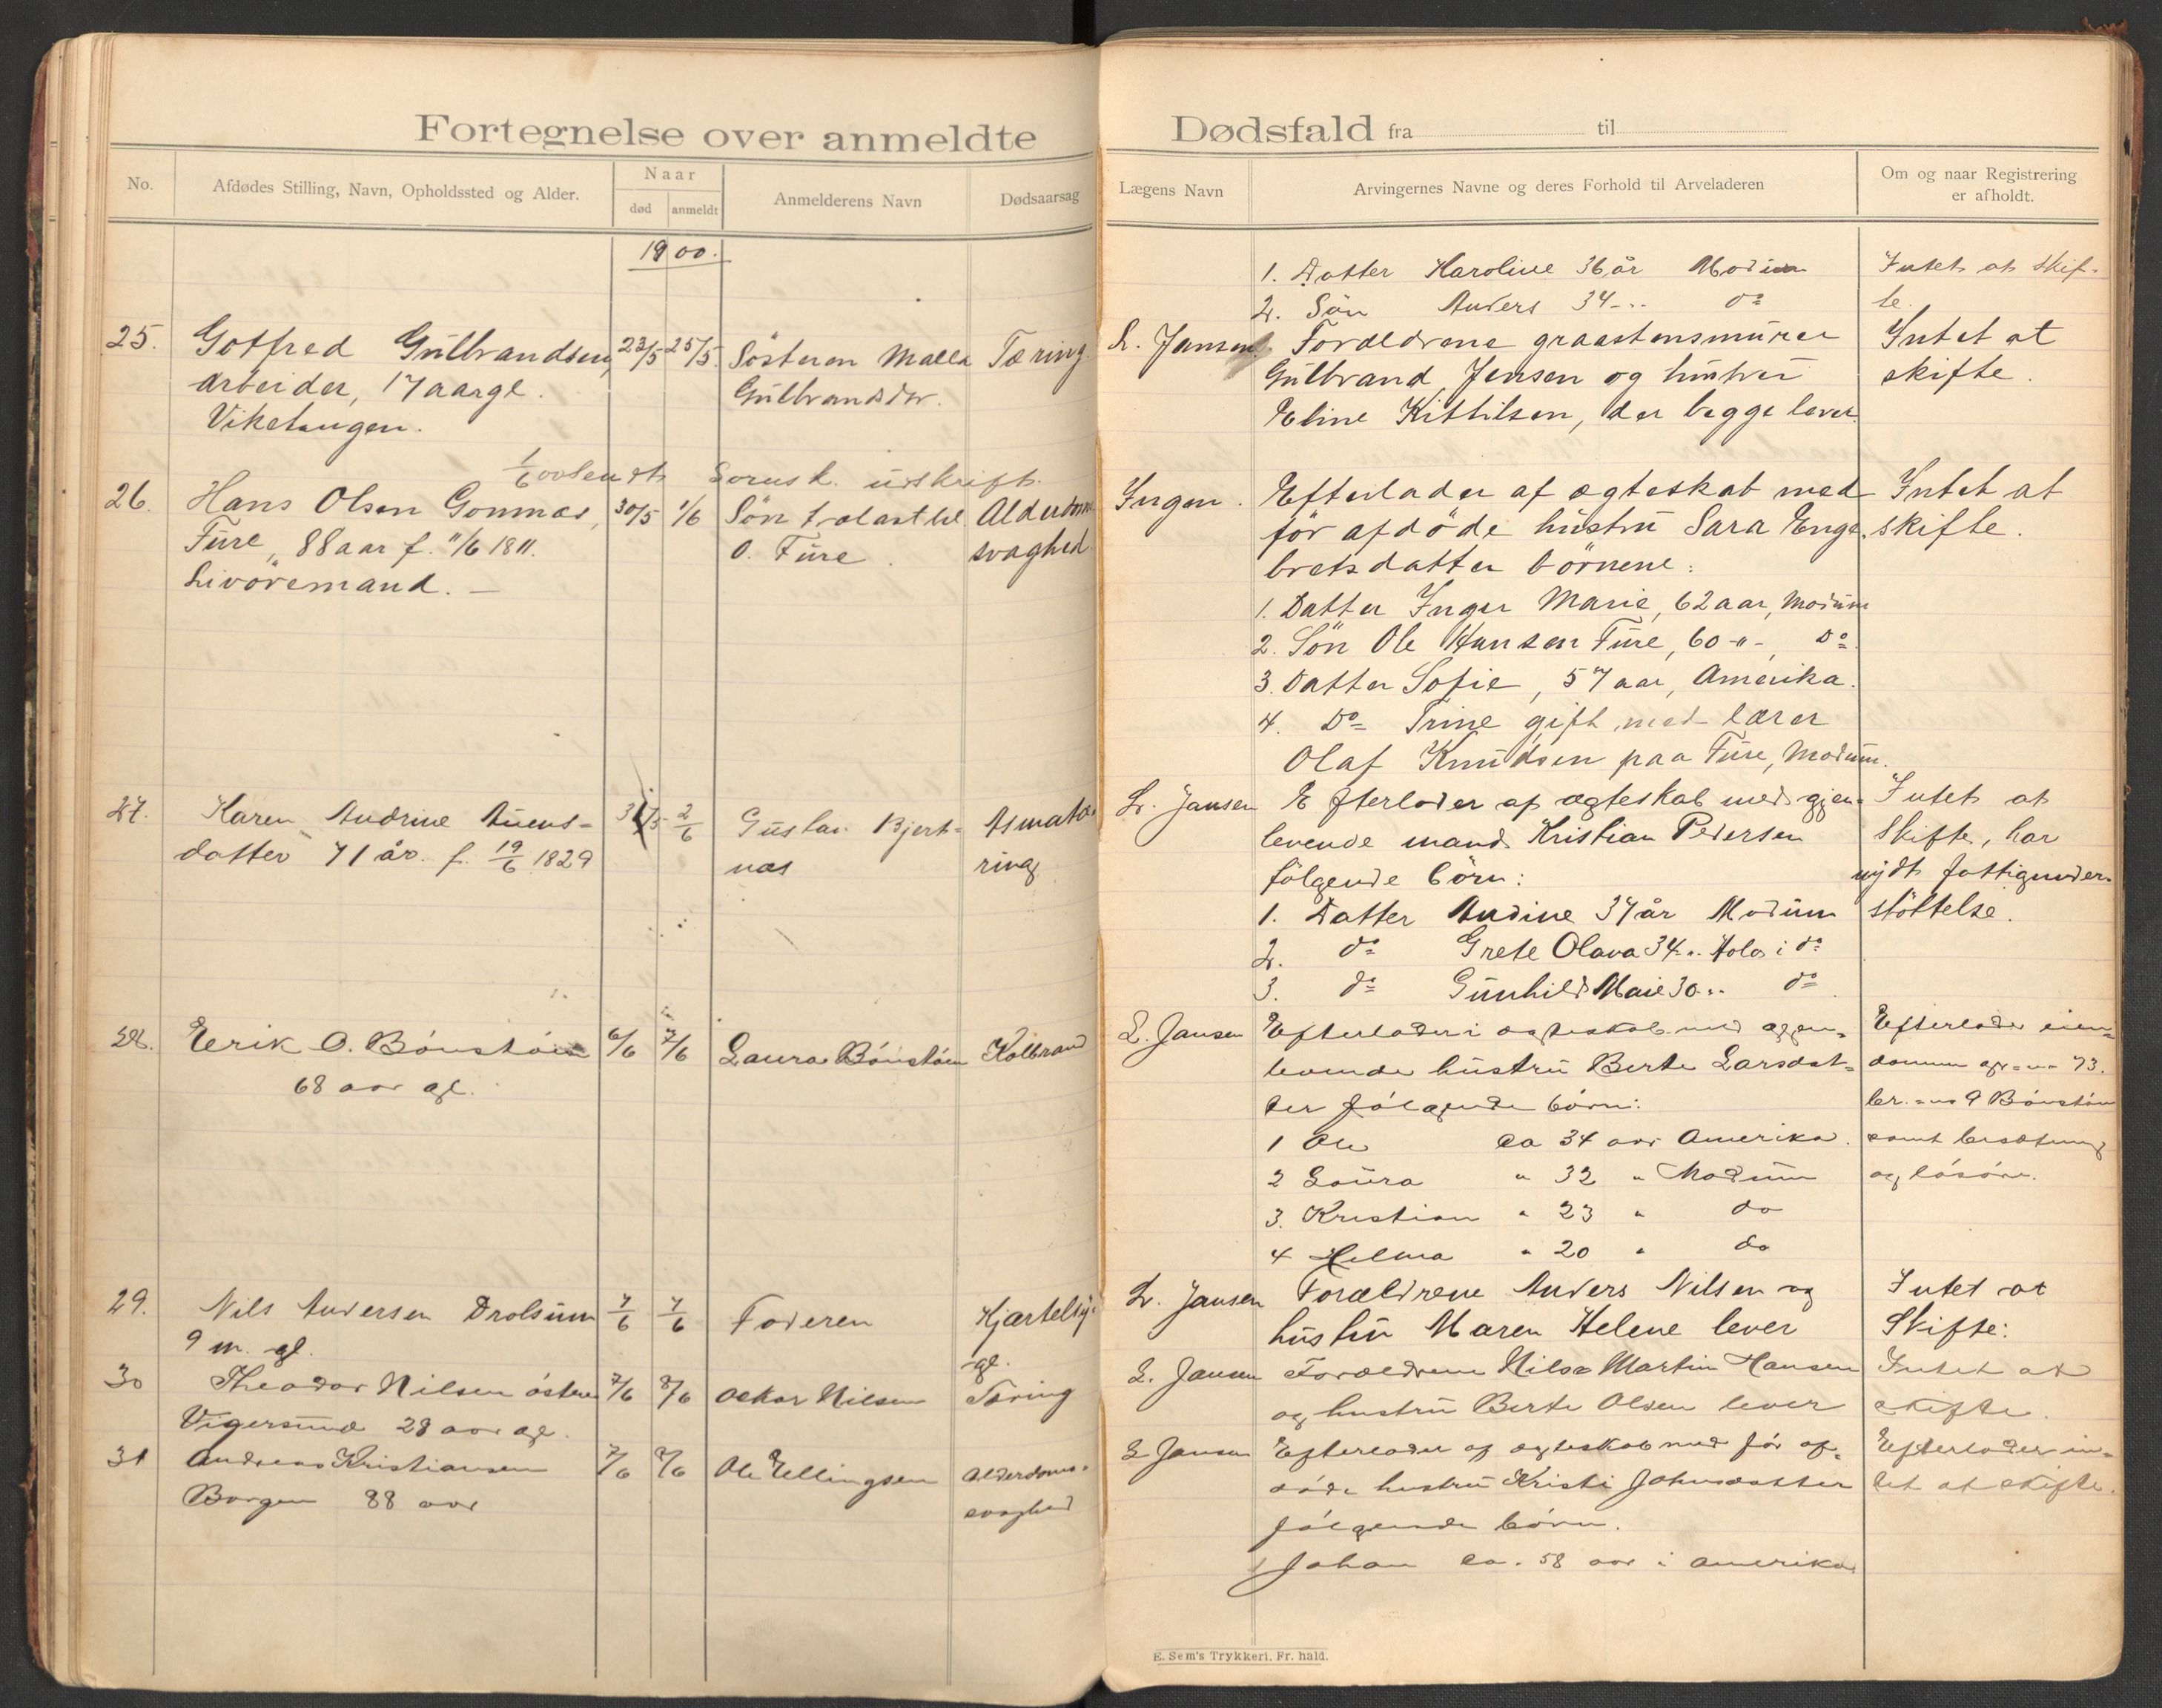 Fortegnelse over anmeldte
No.
Afdødes Stilling, Navn, Opholdssted og Alder.
Naar
død
anmeldt
Anmelderens Navn
Dødsaarsag
1900.
25. Gotfred Gülbrandsen, 23/5 25/5. Søsteren Malla Tæring.
Arbeider, 17 aargl. Gülbrandsdtr.
Viketangen.
1/6 00 sendt Sorensk. üdskrift.
26. Hans Olsen Gommæs, 30/5 1/6 Søn trælasthl. Alderdoms
Füre, 88 aar f. 11/6 1811. O. Füre. svaghed.
Livøremand. —
27. Karen Andrine Auens- 31/5 2/6 Güstav Bjert- Asmatæ
datter 71 år. f. 19/6 1829 næs ring
28. Eerik O. Bönstöen 6/6 7/6 Laura Bönstöen Kolbrand
68 aar gl.
29. Nils Andersen Drolsüm 7/6 7/6 Faderen Hjærtesy-
9 m. gl. gl.
30 Theodor Nilsen östre 7/6 8/6 Oskar Nilsen Tæring
Vigersünd 28 aar gl.
31 Andreas Kristiansen 7/6 8/6 Ole Ellingsen Alderdoms-
Borgen 88 aar svaghed
Dødsfald fra til
Lægens Navn
Arvingernes Navne og deres Forhold til Arveladeren
Om og naar Registrering
er afholdt.
1. Datter Karoline 36 år Modum Intet at Skif-
2. Søn Anders 34 -.. do te.
L. Jansen Forældrene graastensmürer Intet at
Gülbrand Jensen og hüstrü skifte.
Eline Kittilsen, der begge lever.
Ingen. Efterlader af ægteskab med Intet at
før afdøde hüstrü Sara Enge- skifte.
bretsdatter børnene:
1. Datter Inger Marie, 62 aar, Modüm
2. Søn Ole Hansen Füre, 60 -"-, Do
3. Datter Sofie, 57 aar, Amerika.
4. Do Trine gift med lærer
Olaf Knüdsen paa Füre, Modüm.
L. Jansen Efterlader af ægteskab med gjen- Intet at
levende mand Kristian Pedersen Skifte, har
følgende børn: nydt fattigunder-
1. Datter Andine 37 år Modüm støttelse.
2. do Grete Olava 34 ". Holes i do
3. do Günhild Marie 30 ".. do
L. Jansen Efterlader i ægteskab med gjen- Efterlader eien-
levende hüstrü Berte Larsdat- dommen gr. no 73.
ter følgende børn: br. no 9 Bönstöen
1 Ole ca 34 aar Amerika. samt besætning
2 Laura " 32 " Modüm og løsøre.
3. Kristian " 23 " do
4 Helma " 20 " do
L. Jansen Forældrene Anders Nilsen og Intet at
hüstrü Maren Helene lever Skifte:
L. Jansen Forældrene Nils Martin Hansen Intet at
og hustrü Berte Olsen lever skifte.
L Jansen Efterlader af ægteskab med før af- Efterlader in-
døde hustrü Kristi Johnsdatter tet at skifte.
følgende børn.
1 Johan ca. 58 aar i Amerika
E. Sem's Trykkeri, Fr. hald.